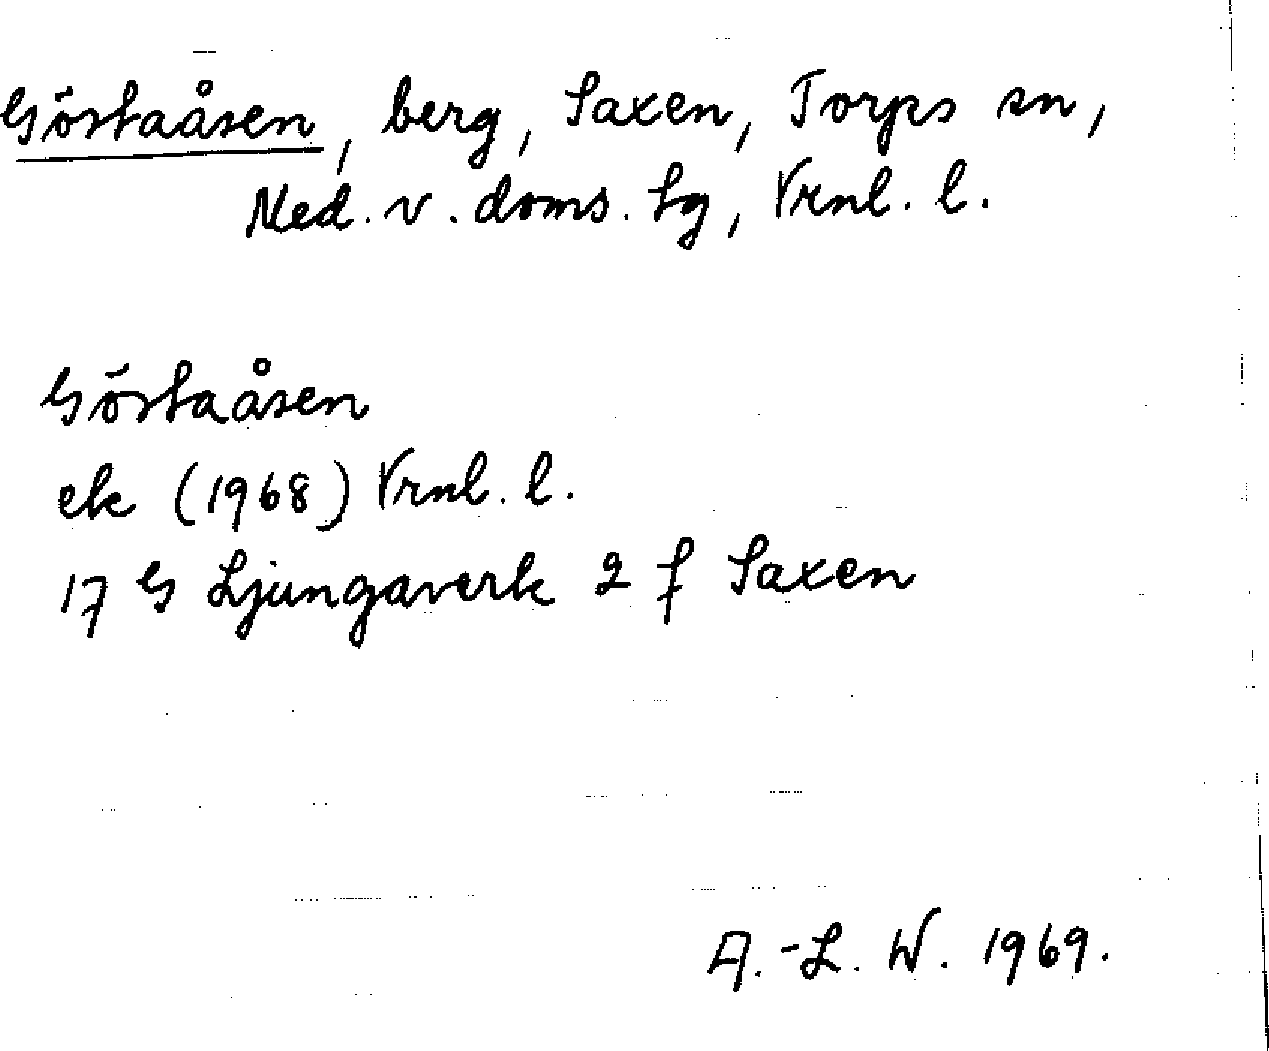 Göstaåsen, berg, Saxen, Torps sn,
Med. v. doms. sg, Vrnl. l.
Göstaåsen
ek (1968) Vrnl. l.
17 G Ljungaverk 2 f Saxen
A.-L. W. 1969.